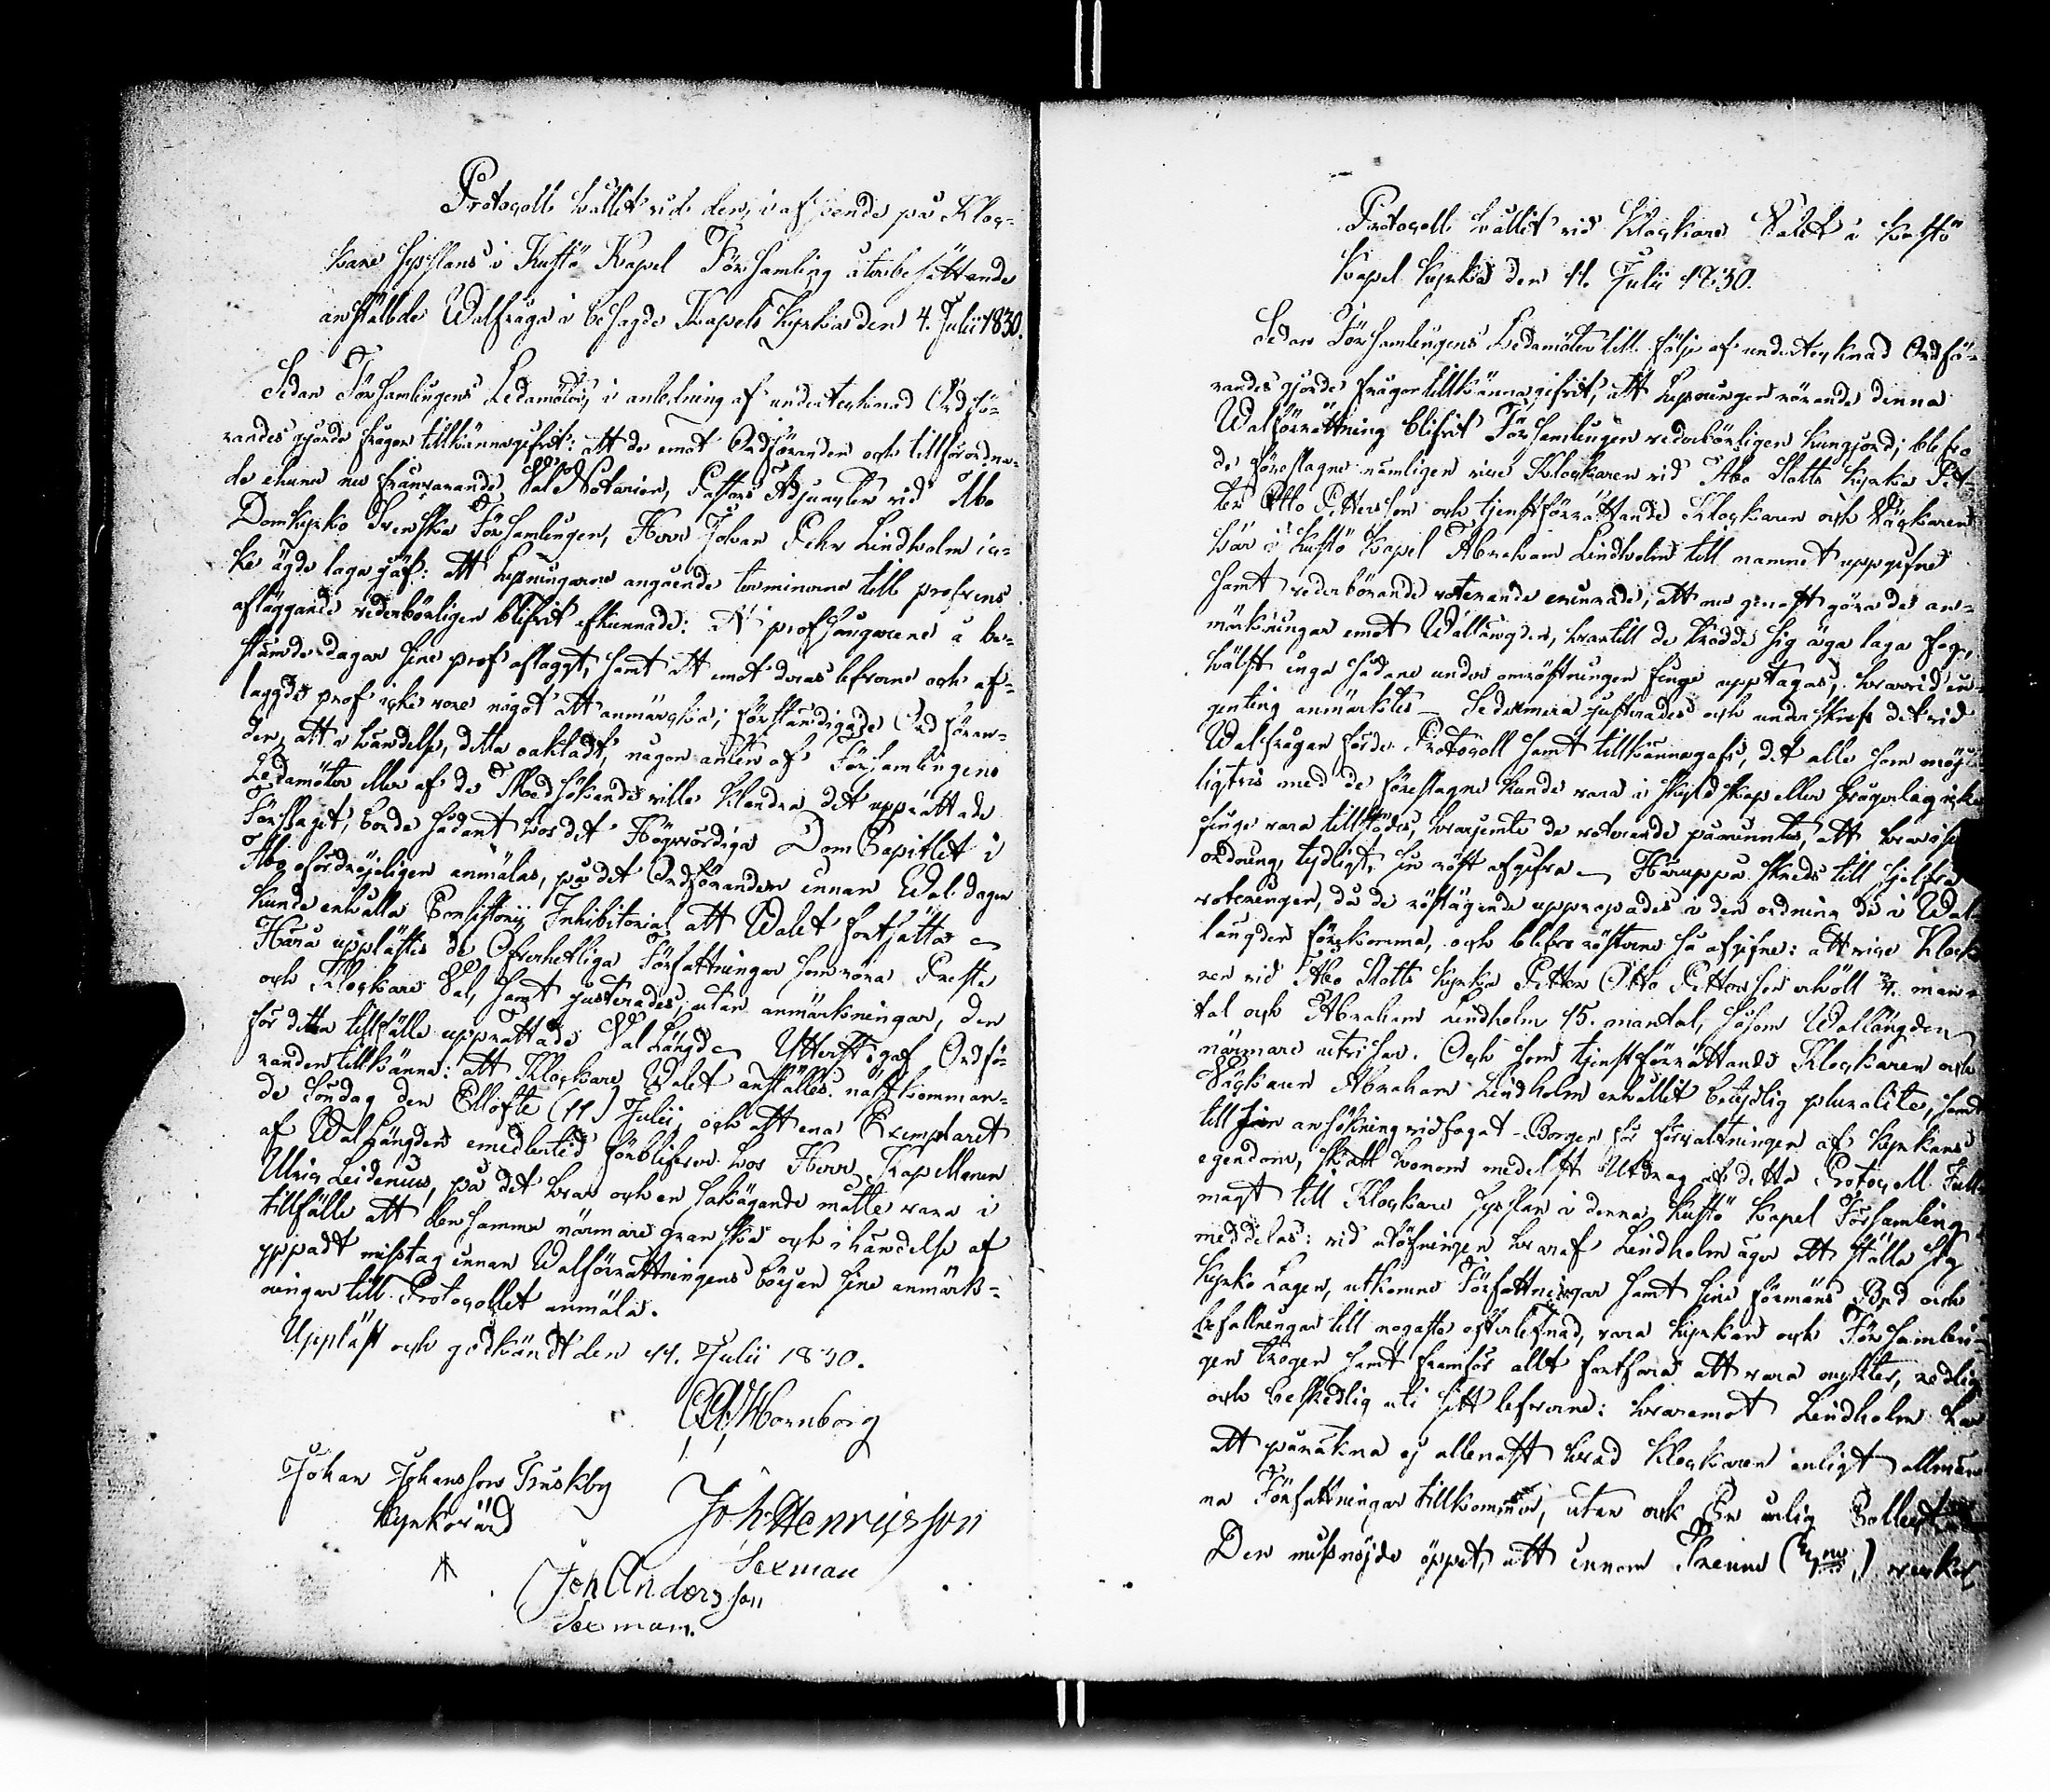 Protocoll hållit vid den, i afseende på Kloc-
kare sysslans i Kustö Kapel Församling återbesättande
anstälde Walfråga i besagde Kapels Kyrka den 4. Julii 1830.
Sedan Församlingens Ledamöter, i anledning af undertecknad Ordfö-
randes gjorde frågor tillkännagifvit: att de emot Ordföranden och tillförordna-
de ehuru nu frånvarande Val Notarien, Pastors Adjuncten vid Åbo
Domkyrko Svenska Församlingen, Herr Johan Pehr Lindholm ic-
ke ägde laga jäf: att Lysningarne angående terminerne till profvens
afläggande vederbörligen blifvit afkunnade: att profsångarene å be-
stämde dagar sine prof aflaggt, samt att emot deras lefverne och af-
laggde prof icke vore något att anmärcka; förständigade Ordföran-
den, att i händelse, detta oaktadt, någon anten af Församlingens
Ledamöter eller af de Medsökande ville klandra det upprättade
Förslaget, borde sådant hos det Högvördiga DomCapitlet i
Åbo ofördröjeligen anmälas, på det Ordföranden innan Wal dagen
kunde erhålla Consistorii Inhibitorial att Walet fortsätta
Härå upplästes de Öfverhetliga Författningar som röra Prest
och Klockare Val, samt justerades, utan anmärkningar, den
för detta tillfälle upprättade Val Längd Ytterst gaf Ordfö-
randen tillkänna: att Klockare Walet anställes nästkomman-
de Söndag den Ellofte (11) Julii, och att ena Exemplaret
af Wal Längden emedlertid förblifver hos Herr Kapellanen
Ulric Leidenius, på det hvar och en sakägande måtte vara i
tillfälle att densamma närmare granska och i händelse af
yppadt misstag innan Walförrättningens början sine anmärk-
ningar till Protocollet anmäla.
Uppläst och godkändt den 11. Julii 1830.
Hornborg
Johan Johansson Friskby
Kyrkovärd
Joh Henricsson
Sexman
Joh Andersson
Sexman.
Protocoll hållit vid Klockare Valet i Kustö
Kapel Kyrka den 11. Julii 1830.
Sedan Församlingens Ledamöter till följe af undertecknad Ordfö-
randes gjorde frågor tillkännagifvit, att Lysningen rörande denna
Walförrättning blifvit Församlingen vederbörligen kungjord; blefvo
de föreslagne nämligen vice Klockaren vid Åbo Slotts Kyrka Pet-
ter Otto Pettersson och tjenstförrättande Klockaren och Väckaren
här i Kustö Kapel Abraham Lindholm till namnet uppgifne
samt vederbörande voterande erinrade, att nu genast göra de an-
märkningar emot Wallängden, hvartill de trodde sig äga laga fog,
hälst inga sådane under omröstningen finge upptagas, hvarvid in-
genting anmärktes Sedermera justerades och underskrefs det vid
Walfrågan förde Protocoll samt tillkännagafs, det alle som möje-
ligtvis med de föreslagne kunde vara i skyldskap eller svågerlag icke
finge vara tillstädes, hvarjemte de voterande påmintes, att hvar i sin
ordning, tydligt, sin röst afgifva Häruppå skreds till sjelfva
voteringen, då de röstägande uppropades i den ordning de i Wal-
längden förekomma, och blefvo rösterne så afgifne: att vice Klocka
ren vid Åbo Slotts Kyrka Petter Otto Pettersson erhöll 3/4. man-
tal och Abraham Lindholm 15. mantal, såsom Wallängden
närmare utvisar. Och som tjenstförrättande Klockaren och
Väckaren Abraham Lindholm erhållit betydlig pluralite, samt
till sin ansökning vidfogat Borgen för förvaltningen af Kyrkans
egendom, skall honom medelst Utdrag af detta Protocoll Full-
magt till Klockare sysslan i denna Kustö Kapel Församling
meddelas: vid utöfningen hvaraf Lindholm äger att ställa sig
Kyrko Lagen, utkomne Författningar samt sine förmäns Bud och
befallningar till nogaste efterlefnad, vara Kyrkan och Församlin-
gen trogen samt framför allt fortfara att vara nykter, redlig
och beskedlig uti sitt lefverne: hvaremot Lindholm har
att påräkna ej allenast hvad Klockaren enligt allmän-
na Författningar tillkommer, utan ock En årlig Collect
Den missnöjde öppet, att innom Trenne veckor,